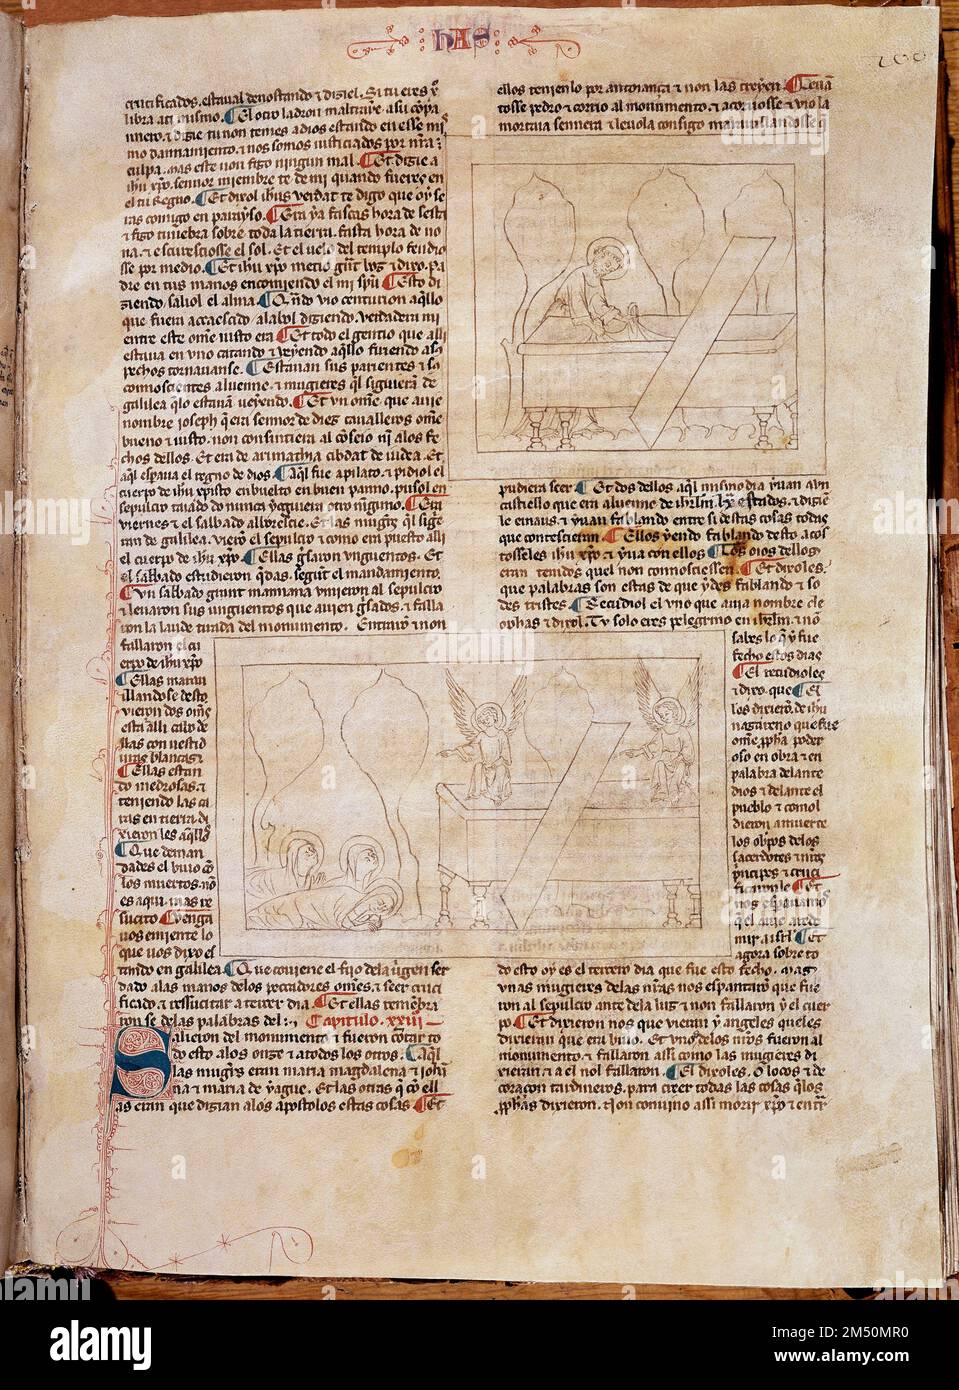 : has :
crucificados. estaual denostando & diziel. Si tu eres xpo
libra ati mismo. ¶ El otro ladron maltraye a su conpa
nnero. & dizie tu non temes a dios estando en esse mis
mo dannamiento. & nos somos iusticiados por nuestra
culpa. mas este non fizo ningun mal. ¶ Et dizie a
ihu xpo. sennor miembre te de mi quando fueres en
el tu Regno. ¶ Et dixol ihus verdat te digo que oy se
ras comigo en parayso. ¶ Era ya fascas hora de sesta
& fizo tiniebra sobre toda la tierra. fasta hora de no
na. & escureciosse el sol. Et el uelo del templo fendio
sse por medio. ¶ Et ihu xpo metio grant boz & dixo. Pa
dre en tus manos encomiendo el mi spu. ¶ Esto di
ziendo. saliol el alma. ¶ Quando uio centurion aquello
que fuera acaescido. alabol diziendo. verdadera mi
entre este ome iusto era ¶ Et todo el gentio que alli
estaua en uno catando & veyendo aquello firiendo a sus
pechos tornauanse. ¶ Estauan sus parientes & sus
connoscientes alueinne. & mugieres quel siguieran de
galilea quelo estauan ueyendo. ¶ Et un ome. que auie
nombre ioseph que era sennor de diez caualleros ome
bueno & iusto. non consintiera al conseio nin alos fe
chos dellos. Et era de arimathia cibdat de iudea. Et
aquel esperaua el regno de dios. ¶ Aquel fue a pilato. & pidiol el
cuerpo de ihu xpisto enbuelto en buen panno. pusol en
sepulcro taiado do nunca yoguiera otro ninguno. ¶ Era
viernes & el sabbado alborescie. Et las mugieres quel sigue
ran de galilea. vieron el sepulcro & como era puesto alli
el cuerpo de ihu xpo. ¶ Ellas guisaron unguentos. Et
el sabbado estudieron quedas. segunt el mandamiento.
¶ Un sabbado grant mannana vinieron al sepulcro
& leuaron sus unguentos que auien guisados. & falla
ron la laude tirada del monumento. Entraron & non
fallaron el cu
erpo de ihu xpo
¶ Ellas marau
illando se desto.
vieron dos omes
esta alli cabo de
llas con uestid
uras blancas &
¶ Ellas estan
do medrosas. &
teniendo las ca
ras en tierra. di
xieron les aquellos
¶ Que deman
dades el biuo con
los muertos. non
es aqui. mas re
sucito ¶ Venga
uos emiente lo
que uos dixo es
tando en galilea. ¶ Que conuiene el fijo dela uirgen ser
dado alas manos delos peccadores omes. & seer cruci
ficado. & ressuscitar a tercer dia. ¶ Et ellas remembra
ron se delas palabras del:. ¶ Capitulo. xxiiij
Salieron del monumento & fueron contar to
do esto alos onze & atodos los otros. ¶ Aquel
las mugieres eran maria magdalena & iohan
na & maria de yague. Et las otras que con ell
as eran que dizian alos apostolos estas cosas ¶ Et
ellos tenienlo por antoiança & non las creyen. ¶ Leuan
tosse pedro & corrio al monumento. & acoruosse & uio la
mortaia sennera & leuola consigo marauillandosse que
pudiera seer ¶ Et dos dellos aquel mismo dia yuan a un
castiello que era aluenne de ihrlm lx estados. & dizien
le emaus. & yuan fablando entre si destas cosas todas
que contescieran. ¶ Ellos yendo fablando desto acos
tosseles ihu xpo & yua con ellos ¶ Los oios dellos
eran tenidos quel non connosciessen. ¶ Et dixoles.
que palabras son estas de que ydes fablando & so
des tristes. ¶ Recudiol el uno que auia nombre cle
ophas & dixol. Tu solo eres pelegrino en ihrlm. & non
sabes lo que y fue
fecho estos dias
¶ El recudioles
& dixo. que ¶ El
los dixieron. de ihu
nazareno que fue
ome. propheta poder
oso en obra & en
palabra delante
dios & delante el
pueblo & como l
dieron a muerte
los obispos delos
sacerdotes & nuestros
principes & cruci
ficaron le ¶ Et
nos esperauamos
que el auie a rede
mir a israel ¶ Et
agora sobre to
do esto oy es el tercero dia que fue esto fecho. Mag
unas mugieres delas nuestras nos espantaron que fue
ron al sepulcro ante dela luz & non fallaron y el cuer
po ¶ Et dixieron nos que vieran y angeles queles
dixieran que era biuo. Et uno delos nuestros fueron al
monumento. & fallaron assi como las mugieres di
xieran & a el nol fallaron. ¶ El dixoles. O locos & de
coraçon tardineros. para creer todas las cosas quelos
prophetas dixieron. Non conuino assi morir xpo & entrar
alamy
2M50MR0
www.alamy.com